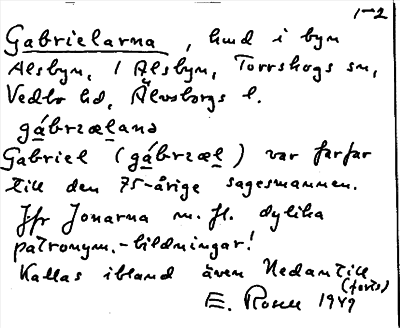 1-2
Gabrielarna, hmd i byn
Alsbyn, i Älsbyn, Torrskogs sn,
Vedbo hd, Älvsborgs l.
gábrɪælanə
Gabriel (gábrɪæl) var farfar
till den 75-årige sagesmannen.
Jfr Jonarna m. fl. dylika
patronym.-bildningar!
Kallas ibland även Nedantill
(forts)
E. 1949